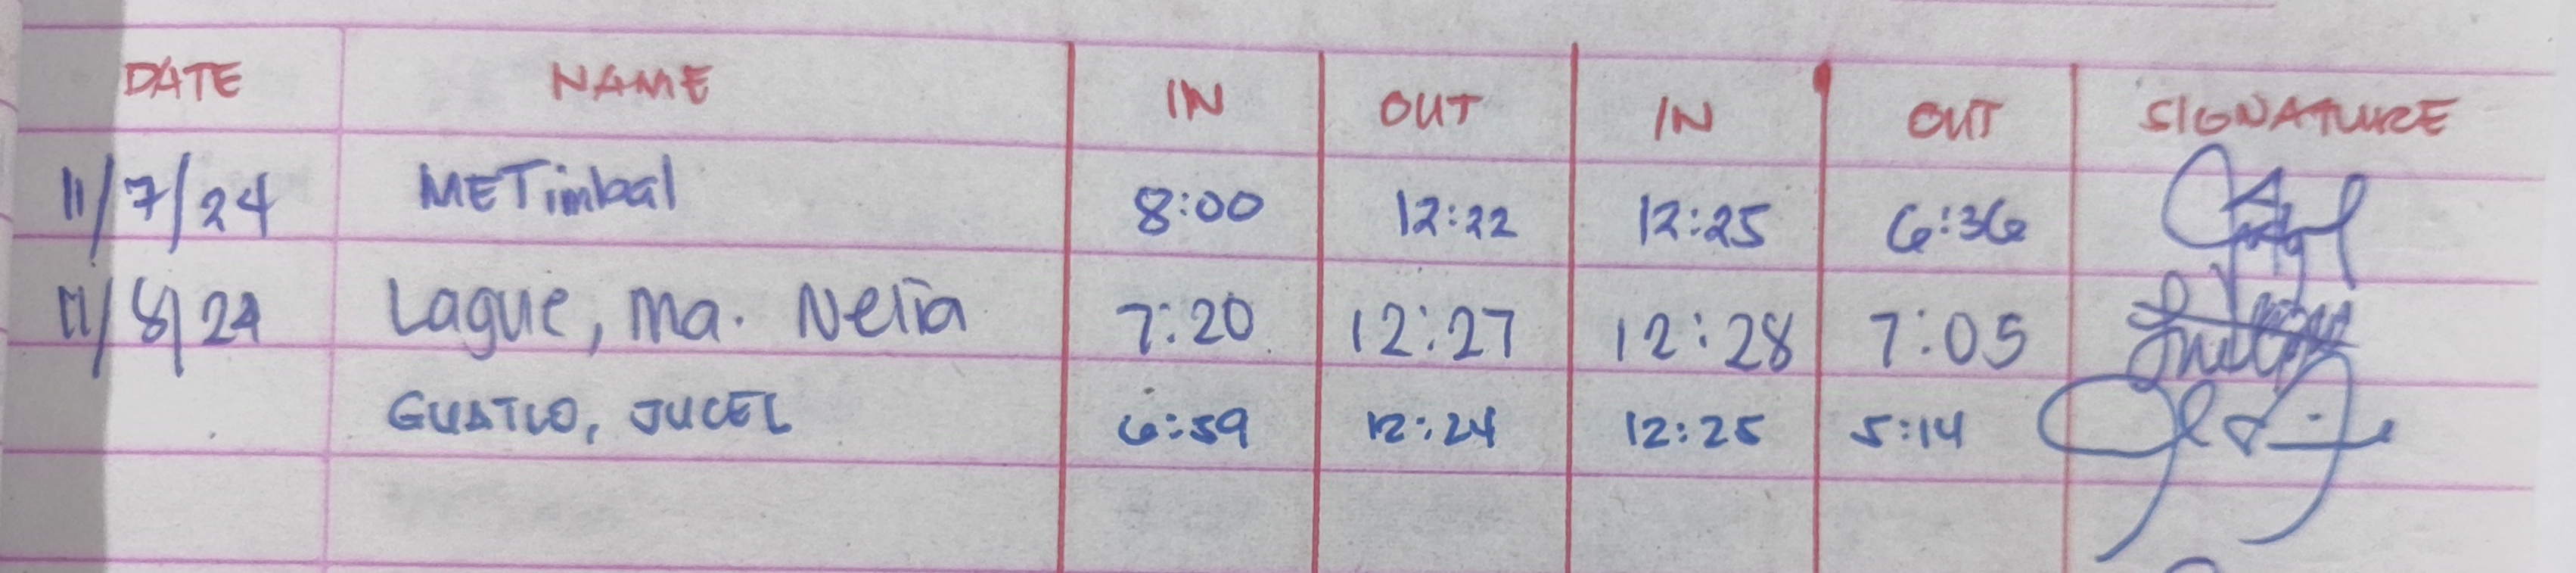 DATE NAME IN OUT IN OUT SIGNATURE
11/7/24 METimbal 8:00 12:22 12:25 6:36
11/8/24 Lague, Ma. Nelia 7:20 12:27 12:28 7:05
GUATLO, JUCEL 6:59 12:24 12:25 5:14